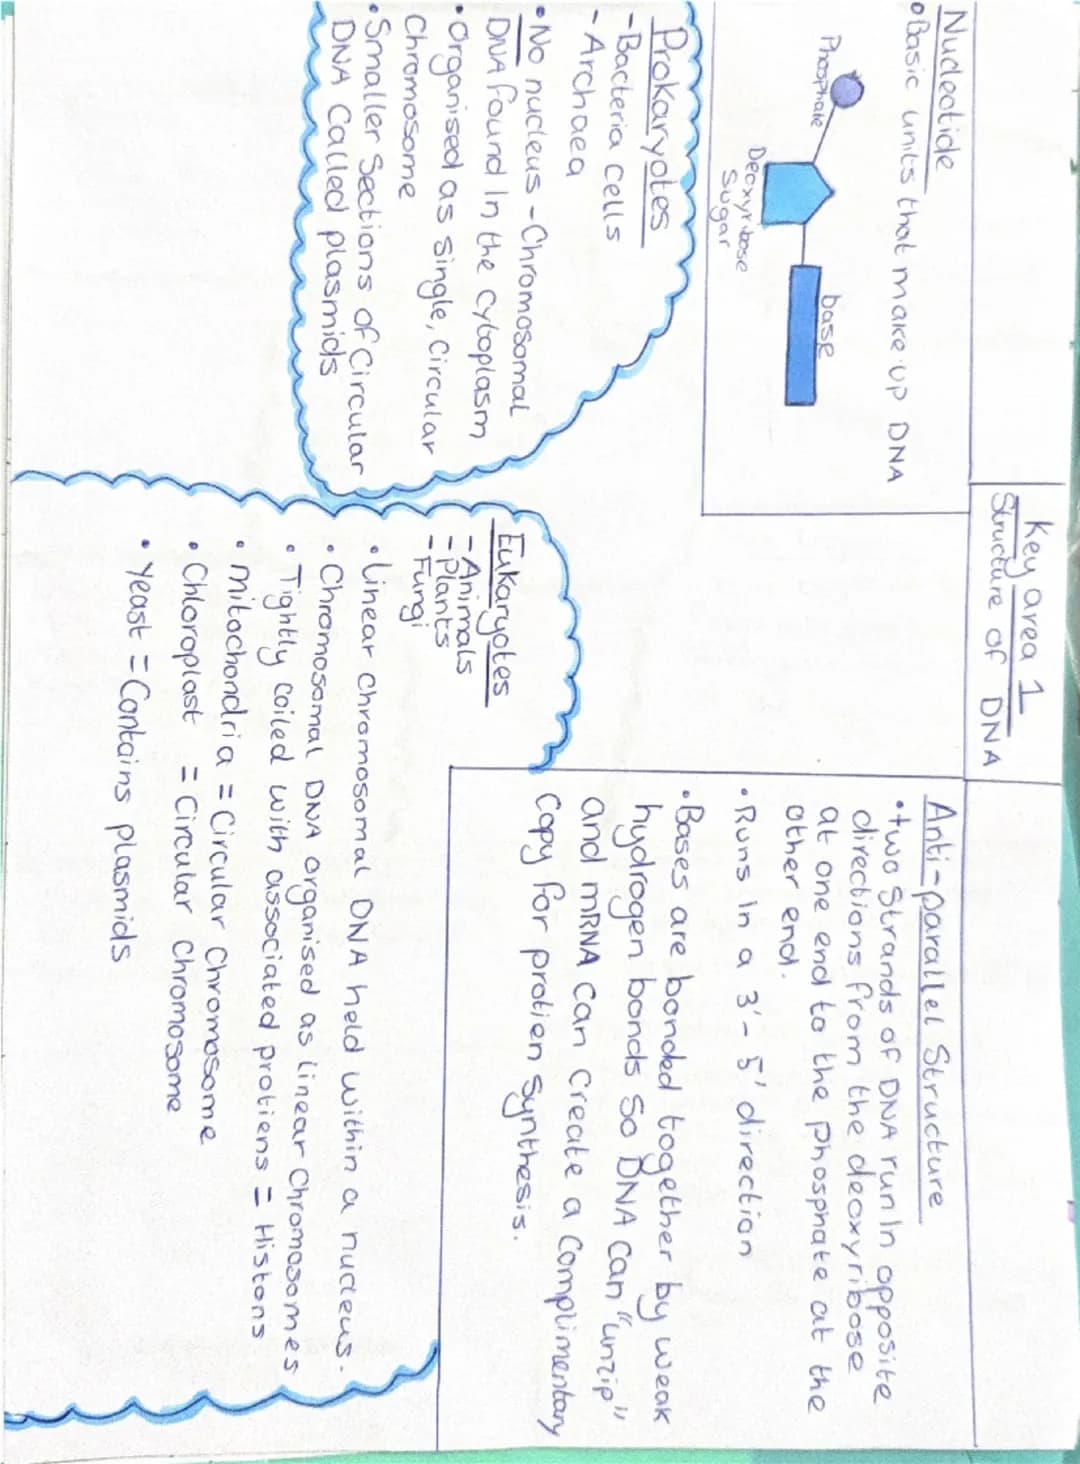 Key area 1
Structure of DNA
Nucleotide
Basic units that make up DNA
Phosphate
Deoxyribose
Sugar
base
Anti-parallel Structure
• two Strands of DNA run In opposite
directions from the deoxyribose
at one end to the phosphate at the
other end.
• Runs In a 3' - 5' direction
• Bases are bonded together by weak
hydrogen bonds so DNA can "unzip"
and mRNA can create a complimentary
Copy for protien synthesis.
Prokaryotes
- Bacteria cells
- Archaea
• No nucleus - Chromosomal
DNA found In the cytoplasm
• Organised as single, Circular
Chromosome
• Smaller Sections of Circular
DNA Called plasmids
Eukaryotes
- Animals
- Plants
- Fungi
• Linear chromosomal DNA held within a nucleus.
• Chromosomal DNA organised as linear Chromosomes
• Tightly coiled with associated protiens = Histons
• mitochondria = Circular Chromosome
• Chloroplast = Circular Chromosome
• Yeast = Contains plasmids